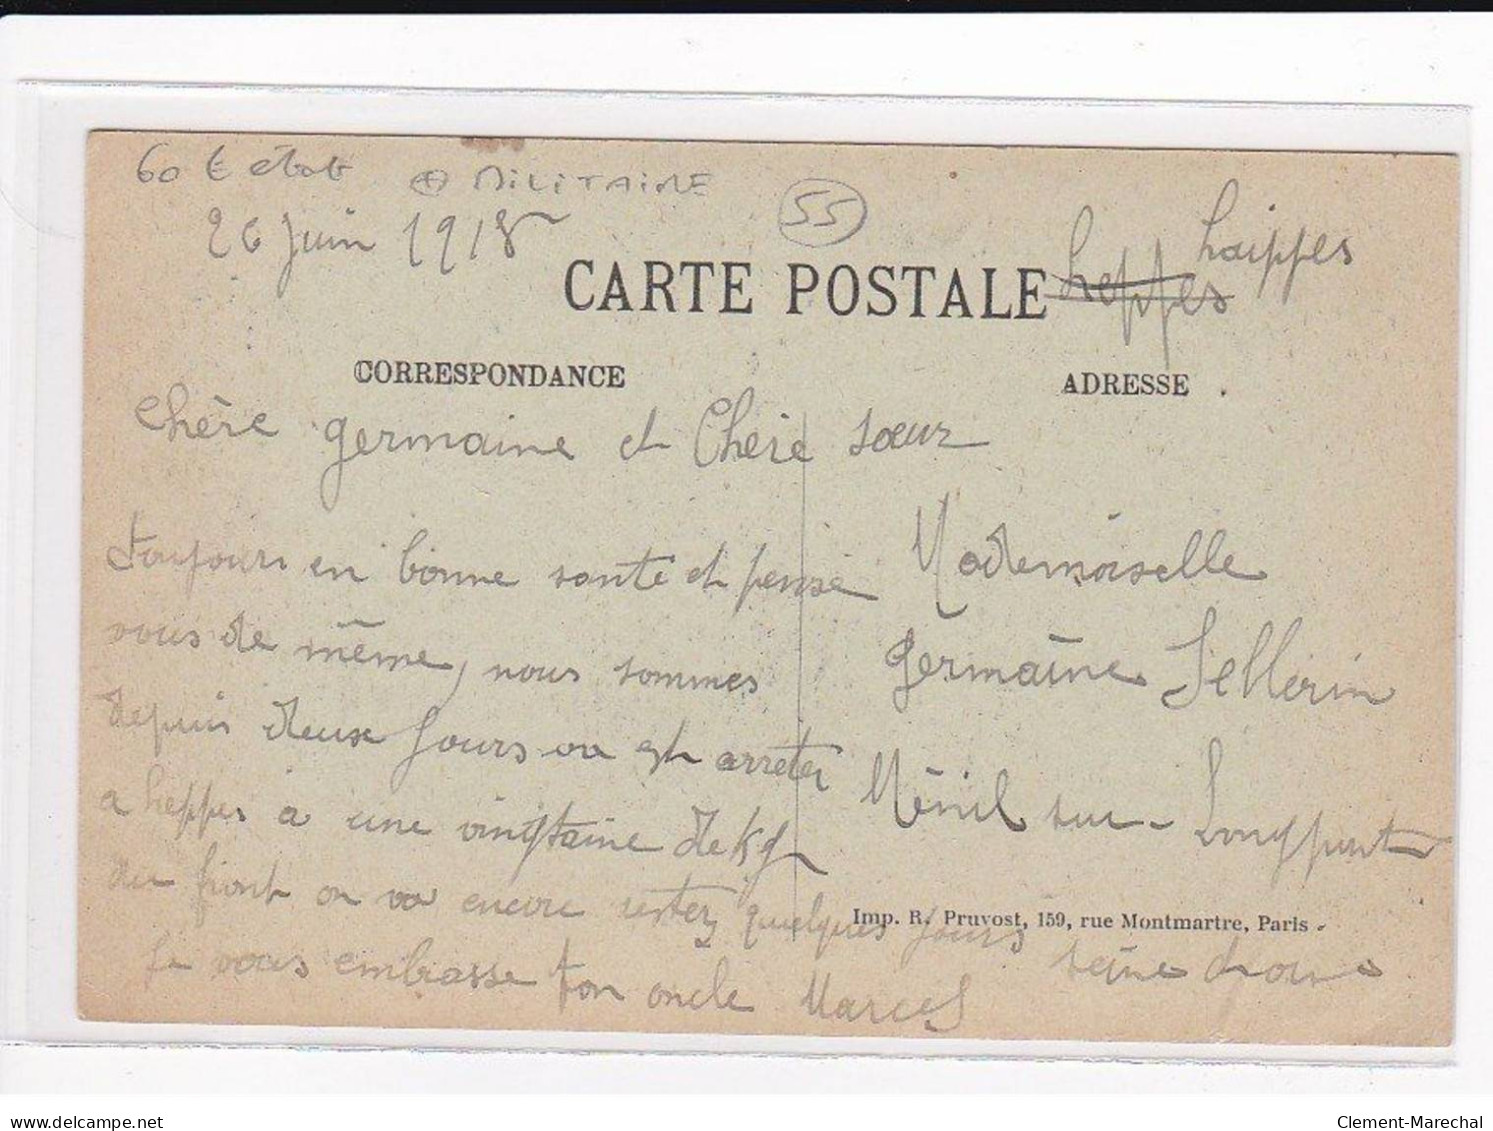 60 € état ⊕ MILITAIRE 55
26 Juin 1918
haippes
heppes
CARTE POSTALE
CORRESPONDANCE
ADRESSE
Chère germaine et Chère sœur
toujours en bonne sante et pense
vous de même, nous sommes
depuis deux Jours on est arreter
a heppes a une vingtaine de Kg
du front on va encore rester quelques Jours
Je vous embrasse ton oncle Marcel
Mademoiselle
germaine Sellerin
Ménil sur Longpont
Imp. R. Pruvost, 159, rue Montmartre, Paris
seine et oise
www.delcampe.net
Clement-Marechal